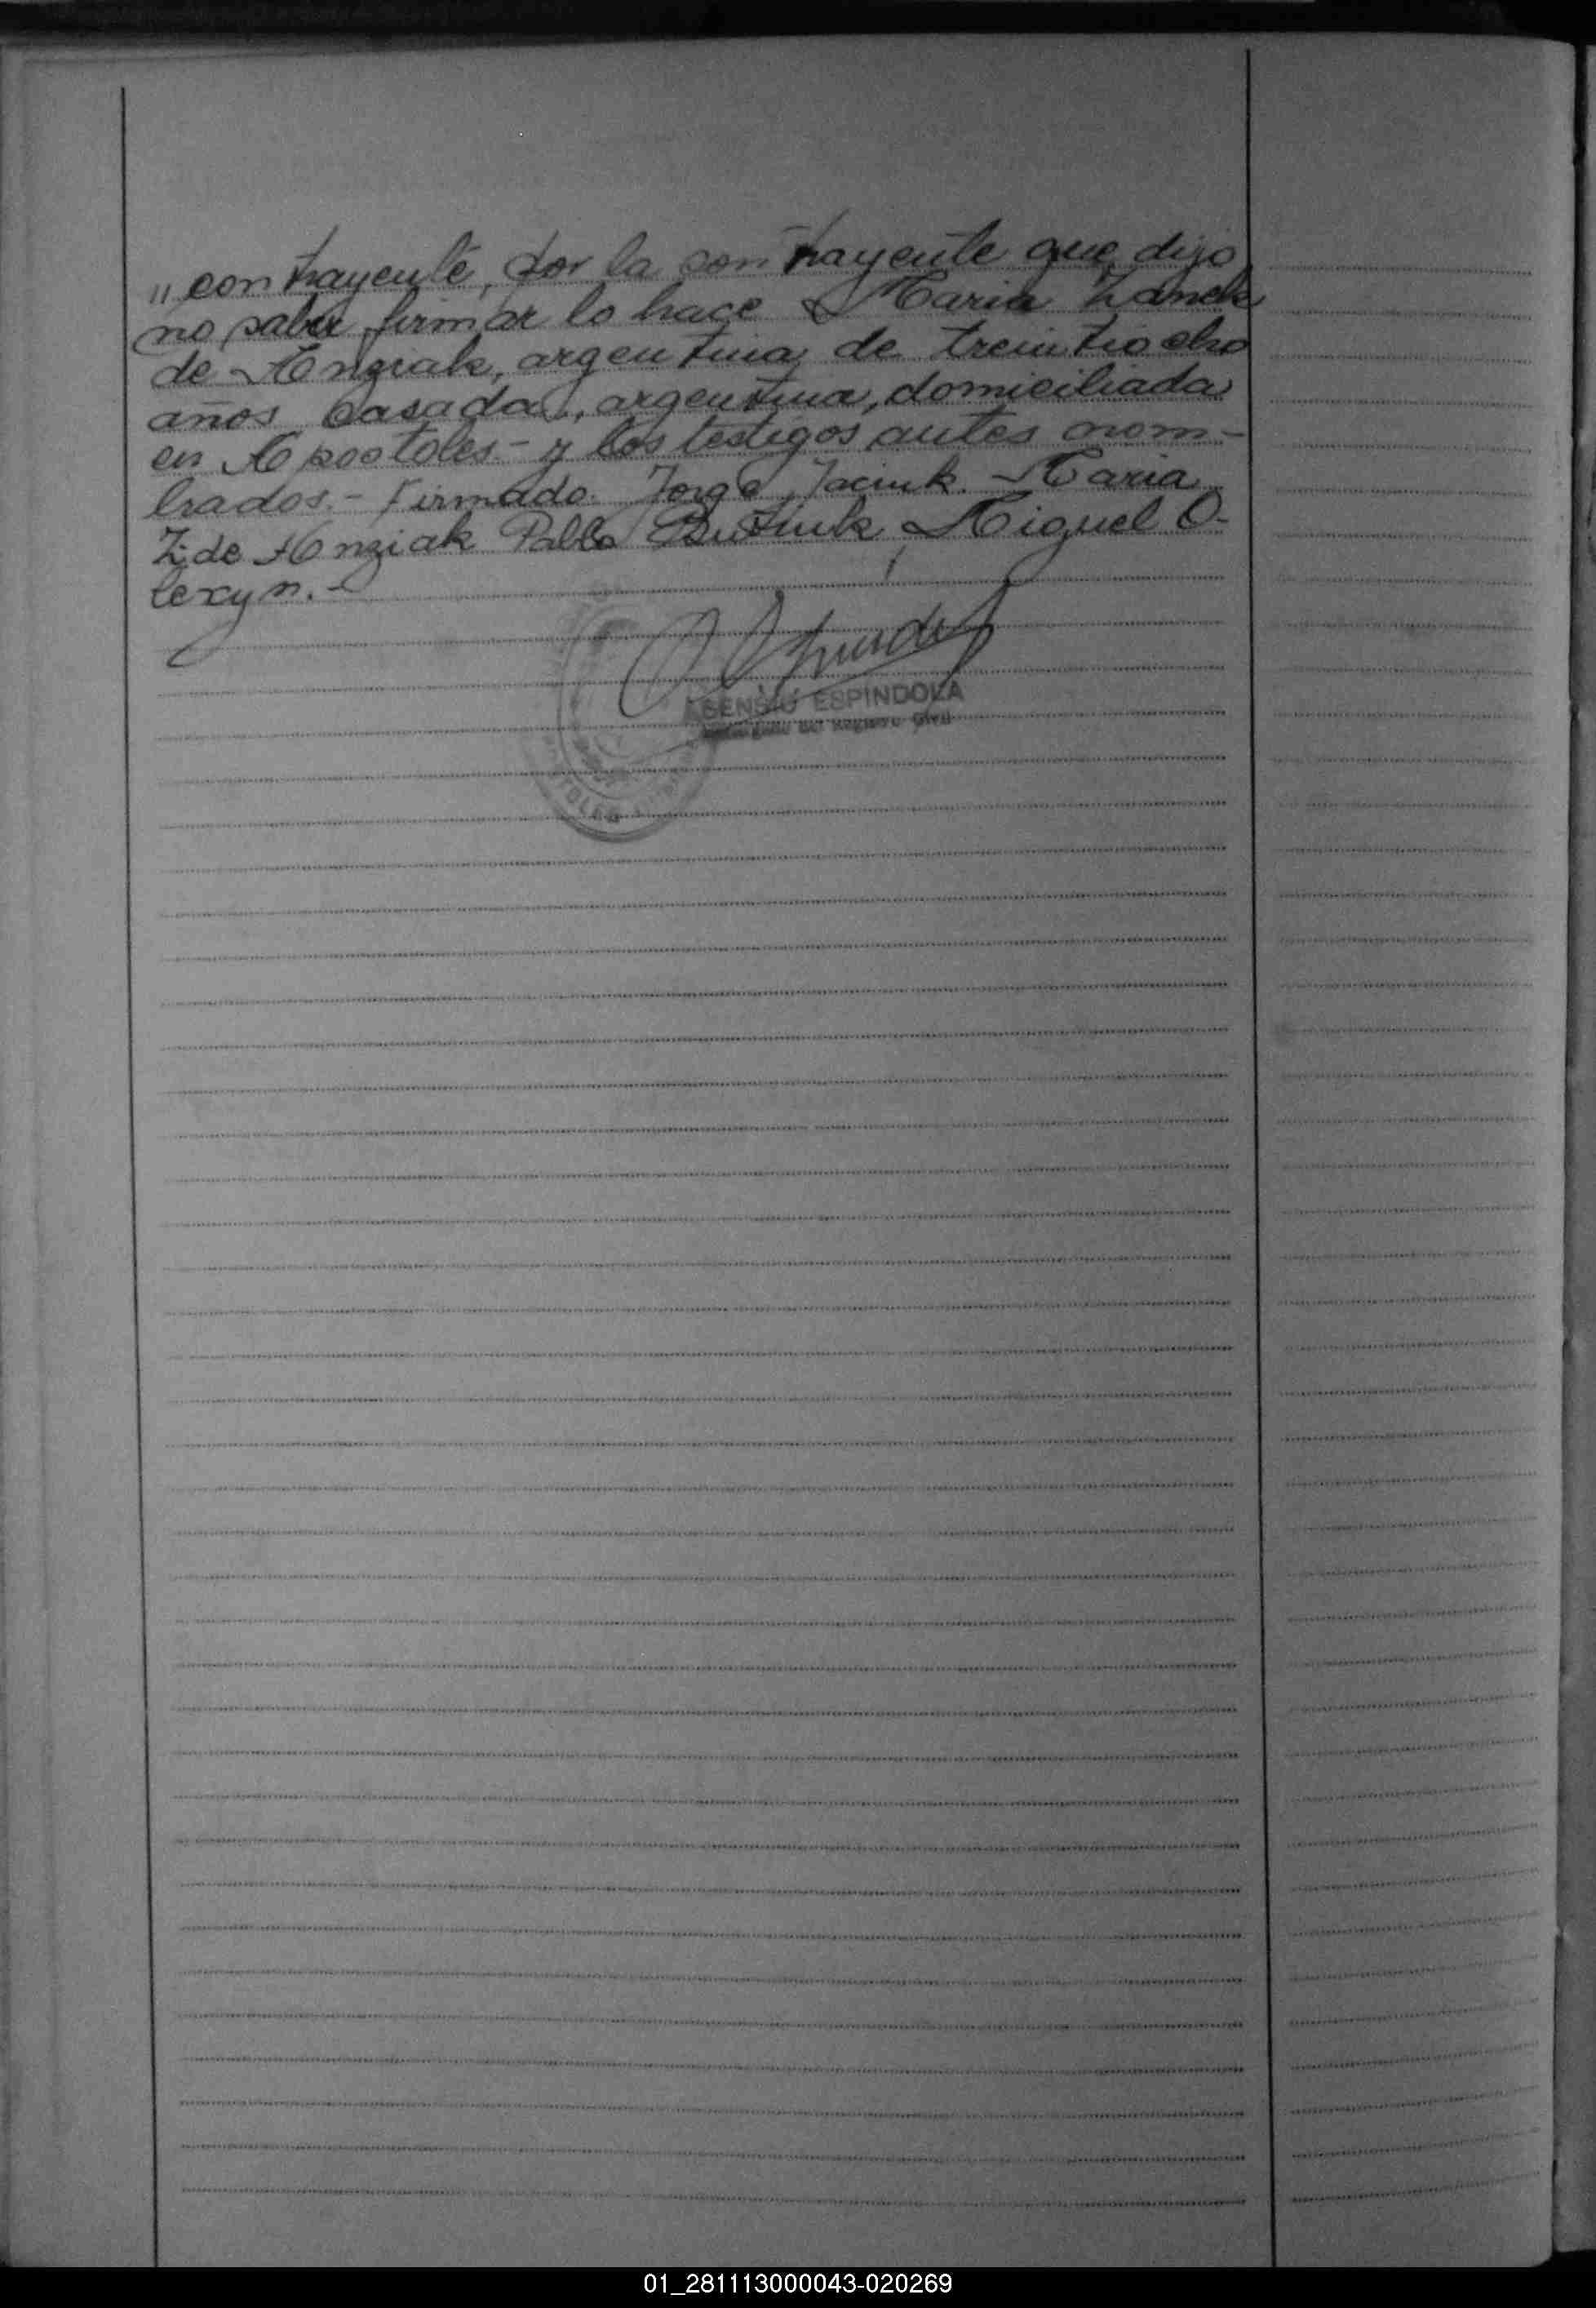 " contrayente, por la contrayente que dijo
no saber firmar lo hace Maria Zanek
de Anziak, argentina de treintiocho
años casada, argentina, domiciliada
en Apostoles - y los testigos antes nom-
brados. - Firmado. Jorge Jaciuk. Maria
Z. de Anziak Pablo Miguel O-
lexyn. -
ASENSIO ESPINDOLA
del Registro Civil
01_281113000043-020269